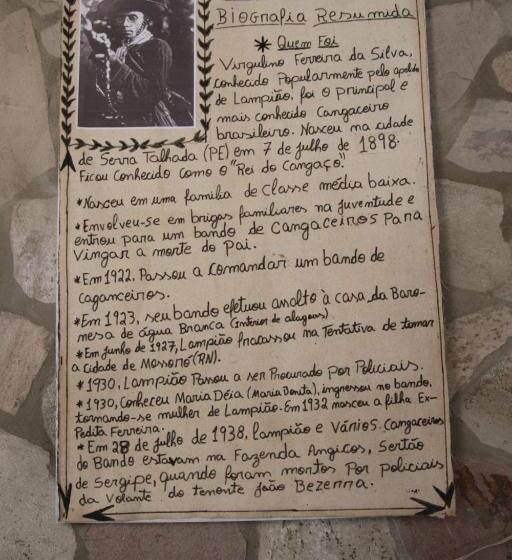 Biografia Resumida
* Quem Foi
Virgulino Ferreira da Silva,
conhecido Popularmente pelo apelido
de Lampião, foi o principal e
mais conhecido Cangaceiro
brasileiro. Nasceu na cidade
de Serra Talhada (PE) em 7 de julho de 1898.
Ficou Conhecido como o "Rei do Cangaço".
*Nasceu em uma familia de Classe média baixa.
*Envolveu-se em brigas familiares na juventude e
entrou para um bando de Cangaceiros Para
Vingar a morte do Pai.
*Em 1922, Passou a comandar um bando de
caganceiros.
*Em 1923, seu bando efetuou assalto à casa da Baro-
nesa de água Branca (Interior de alagoas).
*Em junho de 1927, Lampião fracassou na Tentativa de tomar
a Cidade de Mossoró (RN).
*1930, Lampião Passou a ser Procurado Por Policiais.
*1930, Conheceu Maria Déia (Maria Bonita), ingressou no bando,
tornando-se mulher de Lampião. Em 1932 nasceu a filha Ex-
Pedita Ferreira.
*Em 28 de julho de 1938, Lampião e Vários Cangaceiros
do Bando estavam na Fazenda Angicos, Sertão
de Sergipe, quando foram mortos Por policiais
da Volante do tenente João Bezerra.